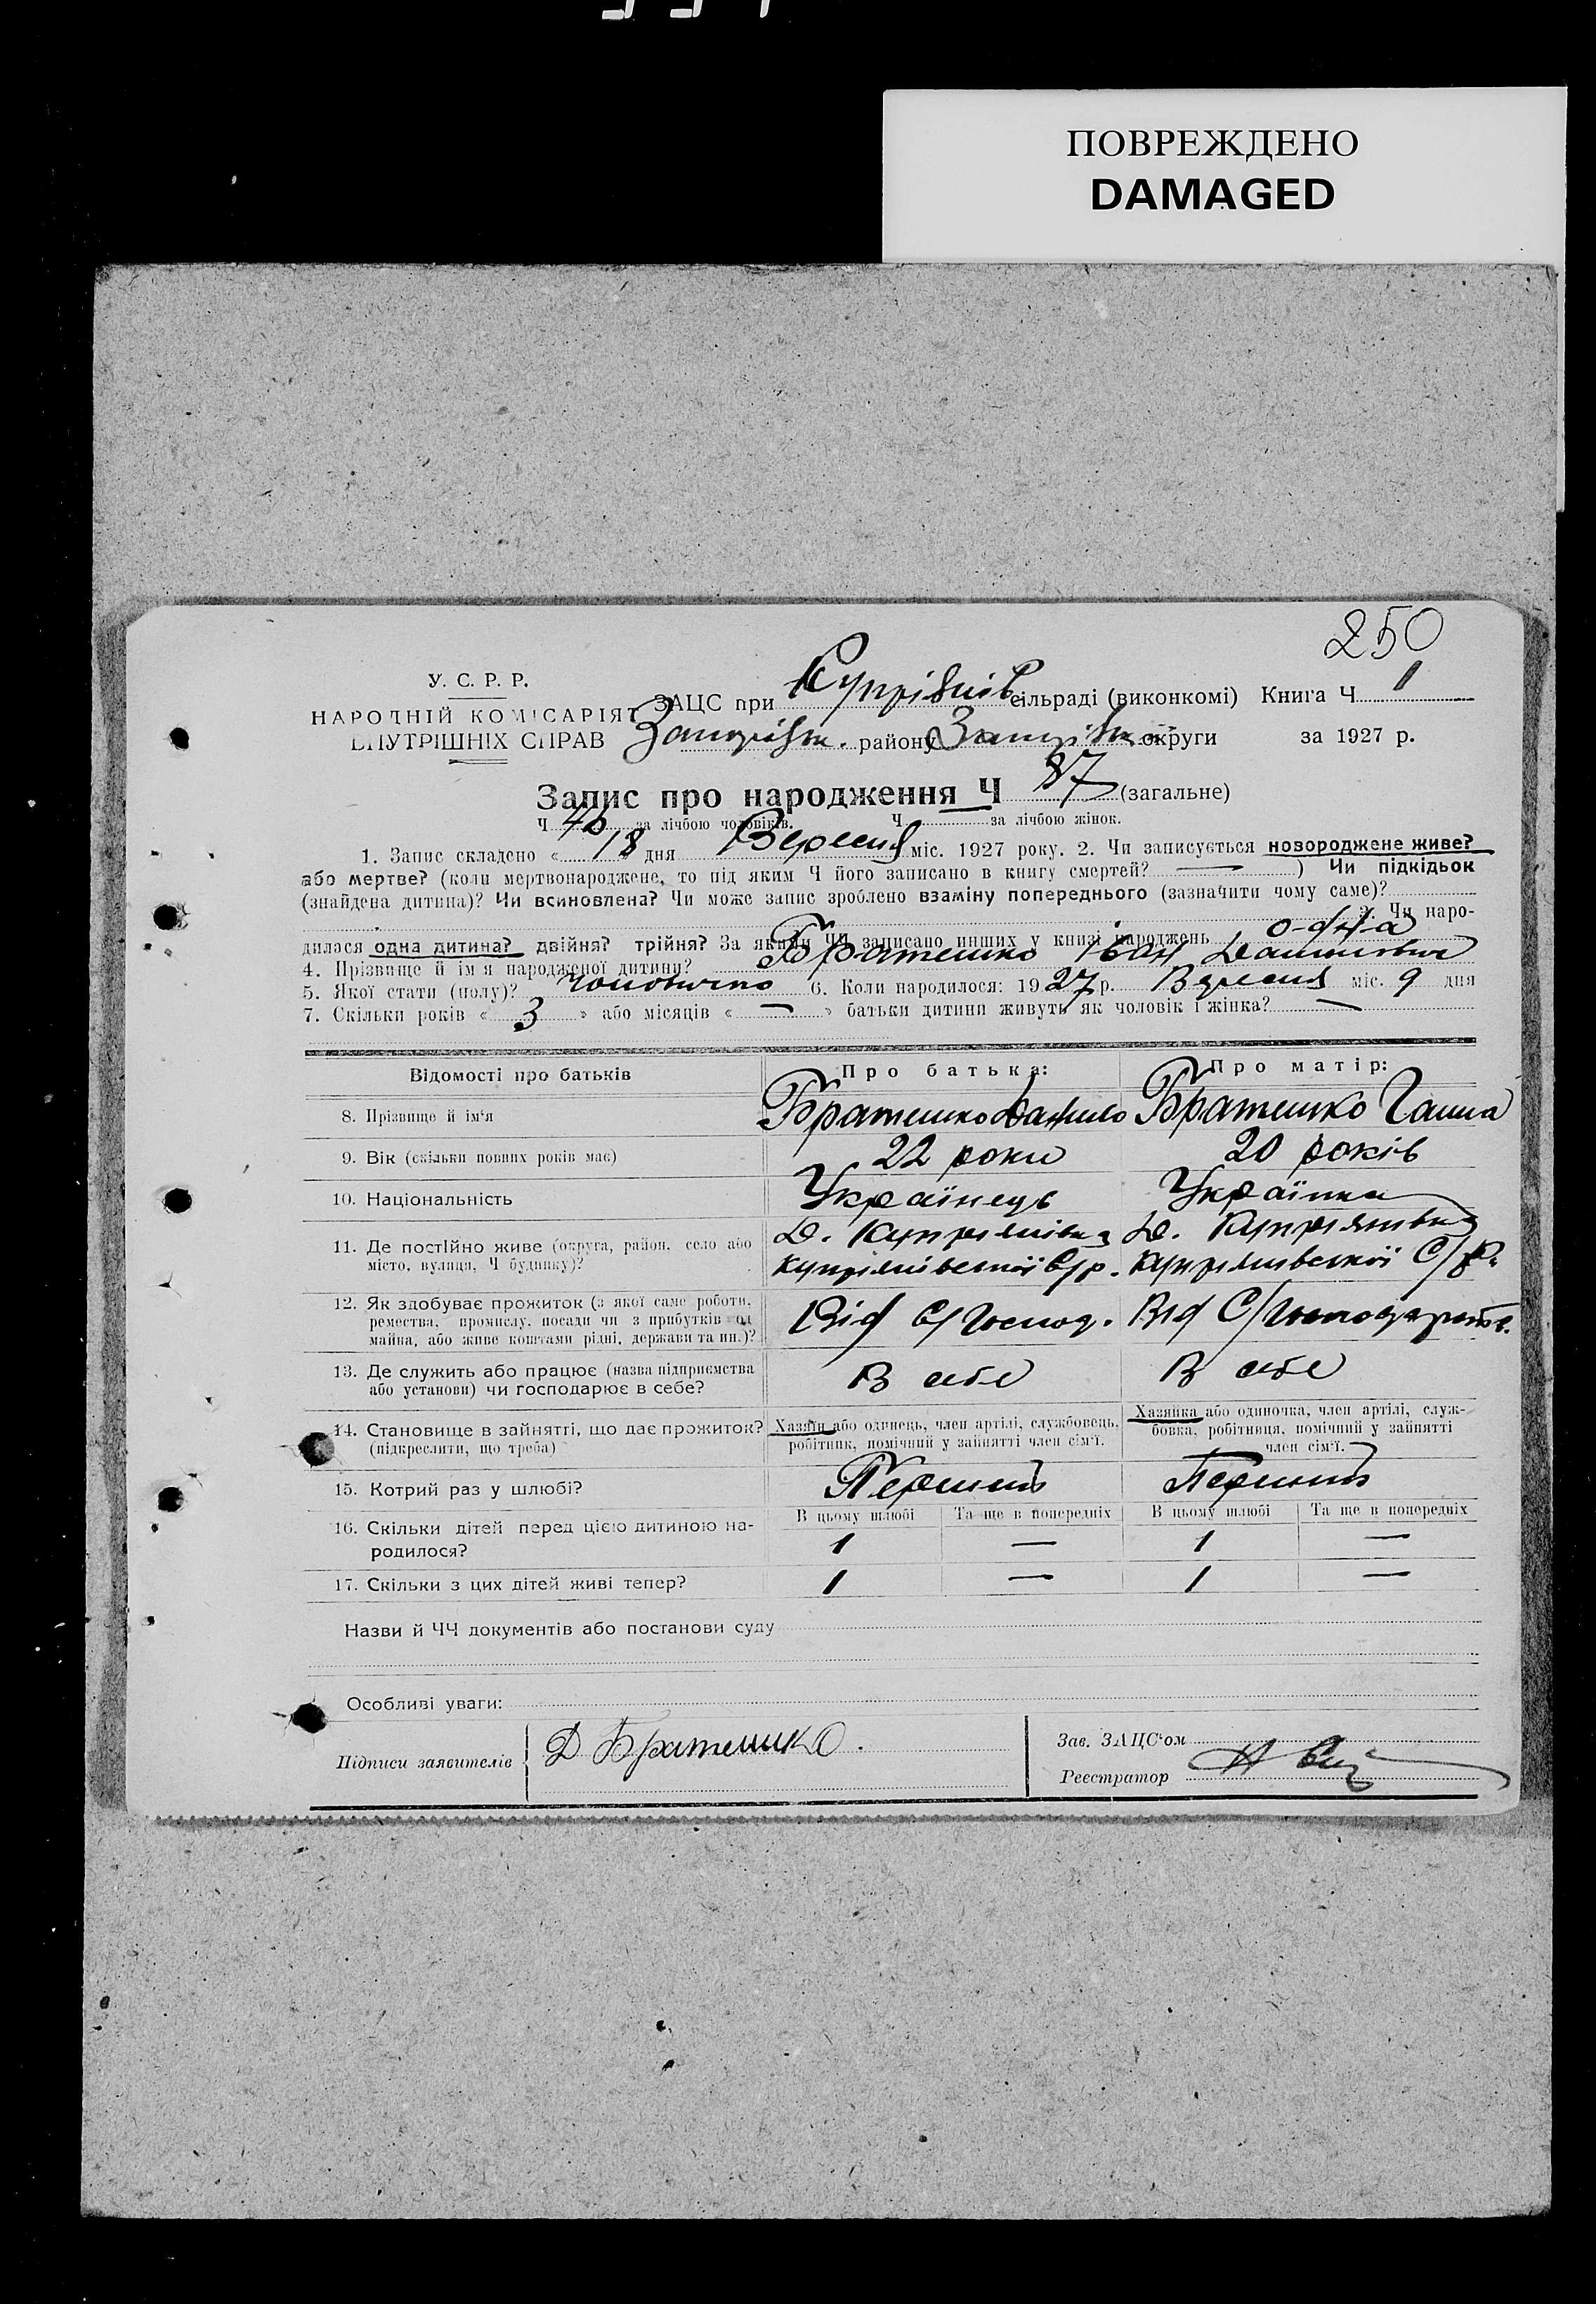 ПОВРЕЖДЕНО
DAMAGED
250
У. С. Р. Р.
НАРОДНІЙ КОМІСАРІЯТ
ВНУТРІШНІХ СПРАВ
ЗАЦС при Купріянів сільраді (виконкомі) Книга Ч 1
району округи за 1927 р.
Запис про народження Ч 87 (загальне)
Ч 46 за лічбою чоловіків. Ч за лічбою жінок.
1. Запис складено « 18 дня Вересня міс. 1927 року. 2. Чи записується новороджене живе?
або мертве? (коли мертвонароджене, то під яким Ч його записано в книгу смертей? — ) Чи підкідьок
(знайдена дитина)? Чи всиновлена? Чи може запис зроблено взаміну попереднього (зазначити чому саме)?
3. Чи наро-
дилася одна дитина? двійня? трійня? За якими ЧЧ записано инших у книзі народжень одна
4. Прізвище й ім'я народженої дитини? Братешко Іван Данилович
5. Якої стати (полу)? Чоловічого 6. Коли народилося: 1927 р. Вересня міс. 9 дня
7. Скільки років « 3 » або місяців « — » батьки дитини живуть як чоловік і жінка? —
Відомості про батьків
Про батька:
Про матір:
8. Прізвище й ім'я
Братешко Данило
Братешко Ганна
9. Вік (скільки повних років має)
22 роки
20 років
10. Національність
Українець
Українка
11. Де постійно живе (округа, район, село або
місто, вулиця, Ч будинку)?
Д. Купріянівка
Купріянівської С/р.
Д. Купріянівка
Купріянівської С/Р.
12. Як здобуває прожиток (з якої саме роботи,
ремества, промислу, посади чи з прибутків од
майна, або живе коштами рідні, держави та ин.)?
Від С/Господ.
Від С/Господарств.
13. Де служить або працює (назва підприємства
або установи) чи господарює в себе?
В себе
В себе
14. Становище в зайнятті, що дає прожиток?
(підкреслити, що треба)
Хазяїн або одинець, член артілі, службовець,
робітник, помічний у зайнятті член сім'ї.
Хазяйка або одиночка, член артілі, служ-
бовка, робітниця, помічний у зайнятті
член сім'ї.
15. Котрий раз у шлюбі?
Перший
Перший
16. Скільки дітей перед цією дитиною на-
родилося?
В цьому шлюбі Та ще в попередніх В цьому шлюбі Та ще в попередніх
1 — 1 —
17. Скільки з цих дітей живі тепер?
1 — 1 —
Назви й ЧЧ документів або постанови суду
Особливі уваги:
Підписи заявителів Д Братешко.
Зав. ЗАЦС'ом
Реєстратор